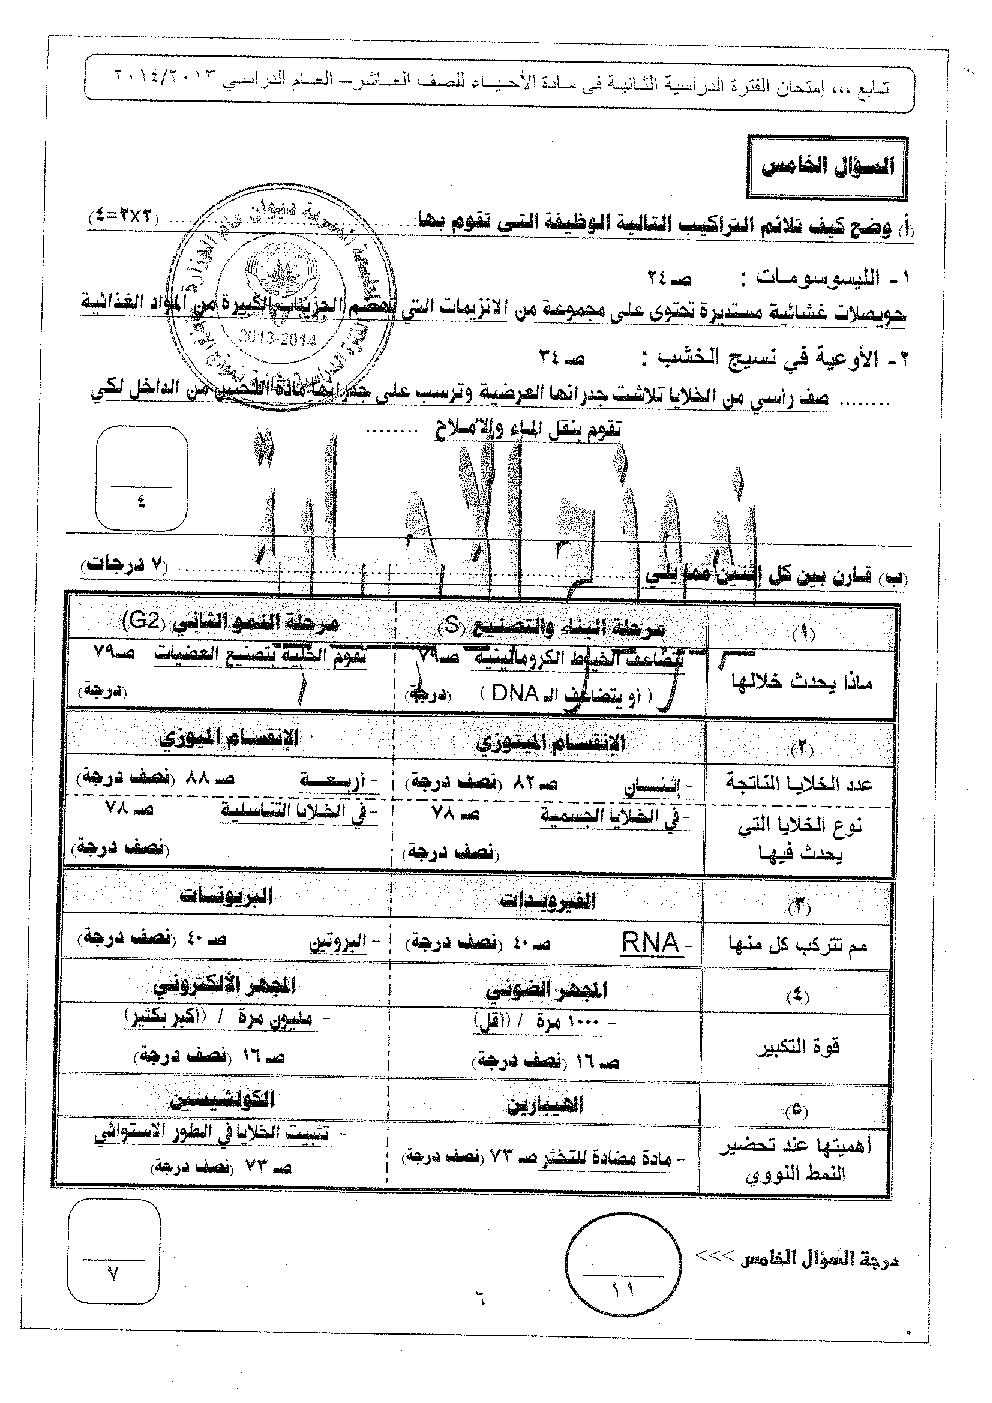 تابع ,,, إمتحان الفترة الدراسية الثانية فى مادة الأحياء للصف العاشر – العام الدراسي ٢٠١٤/٢٠١٣
السؤال الخامس
(أ) وضح كيف تلائم التراكيب التالية الوظيفة التى تقوم بها .................... (٢×٢=٤)
١- الليسوسومات : صـ٢٤
حويصلات غشائية مستديرة تحتوى على مجموعة من الانزيمات التي تهضم الجزيئات الكبيرة من المواد الغذائية
2013-2014
٢- الأوعية في نسيج الخشب : صـ٣٤
........ صف رأسي من الخلايا تلاشت جدرانها العرضية وترسب على جدرانها مادة اللجنين من الداخل لكي
تقوم بنقل الماء والاملاح ........
٤
نموذج الإجابة
(ب) قارن بين كل إثنين مما يلي .................... (٧ درجات)
(١) مرحلة البناء والتصنيع (S) مرحلة النمو الثاني (G2)
ماذا يحدث خلالها تتضاعف الخيوط الكروماتينية صـ٧٩ تقوم الخلية بتصنيع العضيات صـ٧٩
( أو يتضاعف الـ DNA ) (درجة) (درجة)
(٢) الإنقسام الميتوزي الإنقسام الميوزي
عدد الخلايا الناتجة - إثنان صـ ٨٢ (نصف درجة) - أربعة صـ ٨٨ (نصف درجة)
نوع الخلايا التي - في الخلايا الجسمية صـ ٧٨ - في الخلايا التناسلية صـ ٧٨
يحدث فيها (نصف درجة) (نصف درجة)
(٣) الفيرويدات البريونات
مم تتركب كل منها - RNA صـ ٤٠ (نصف درجة) - البروتين صـ ٤٠ (نصف درجة)
(٤) المجهر الضوئي المجهر الألكتروني
قوة التكبير - ١٠٠٠ مرة / (أقل) - مليون مرة / (أكبر بكثير)
صـ ١٦ (نصف درجة) صـ ١٦ (نصف درجة)
(٥) الهيبارين الكولشيسين
أهميتها عند تحضير النمط النووي - مادة مضادة للتخثر صـ ٧٣ (نصف درجة) - تثبيت الخلايا في الطور الاستوائي
صـ ٧٣ (نصف درجة)
٧
درجة السؤال الخامس >>>
١١
٦